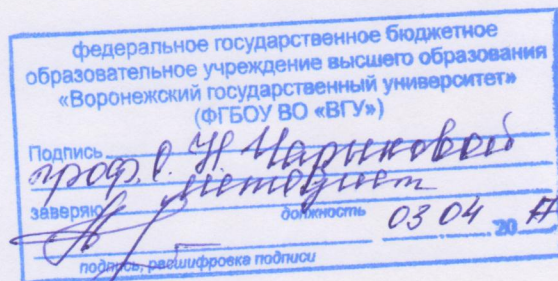 федеральное государственное бюджетное
образовательное учреждение высшего образования
«Воронежский государственный университет»
(ФГБОУ ВО «ВГУ»)
Подпись
проф. С. Н. Чарыковой
методист
заверяю должность 03 04 20
подпись, расшифровка подписи